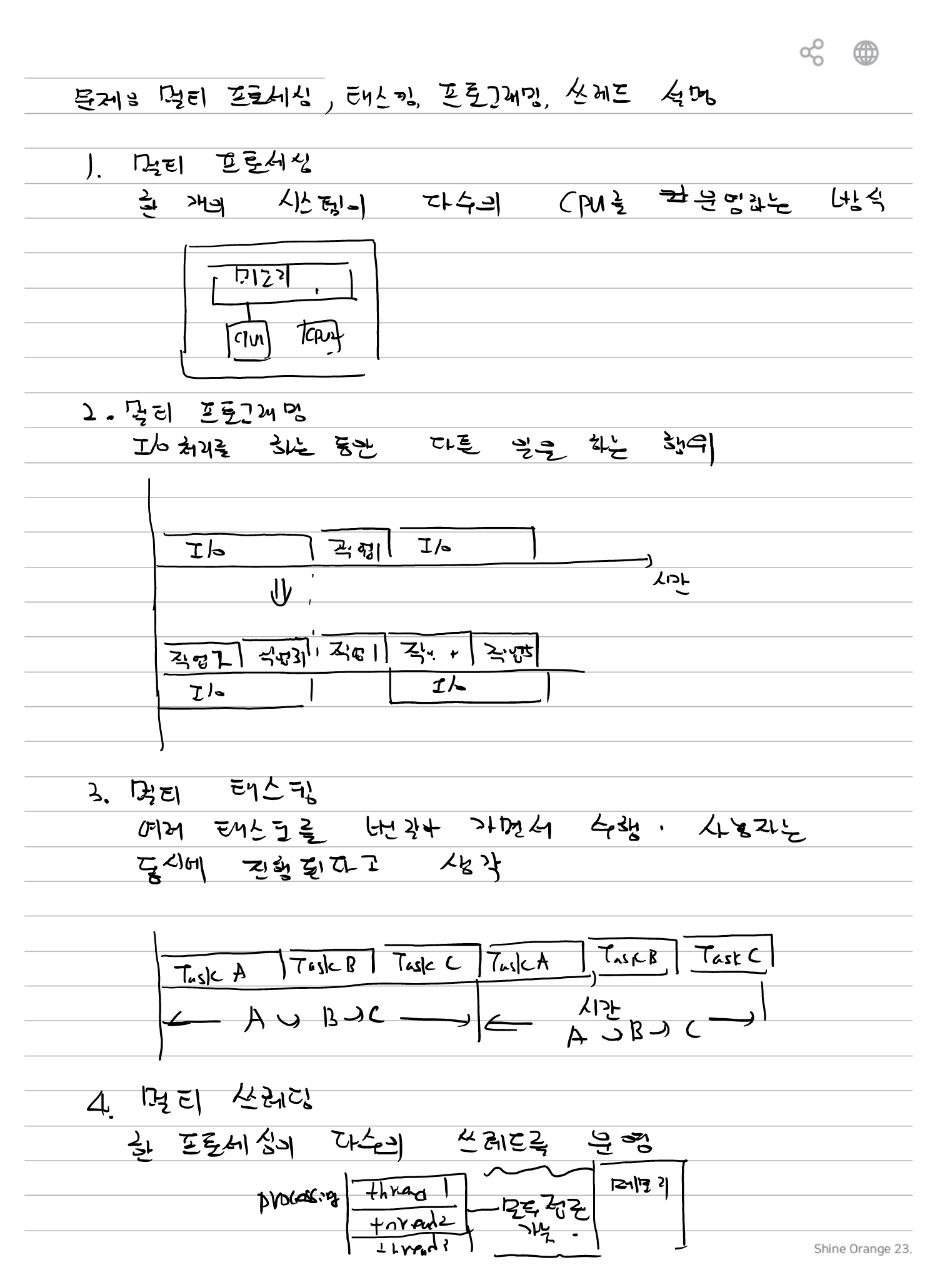 문제8 멀티 프로세싱, 태스킹, 프로그래밍, 쓰레드 설명
1. 멀티 프로세싱
한 개의 시스템이 다수의 CPU를 운영하는 방식
메모리
CPU1 CPU2
2. 멀티 프로그래밍
I/o 처리를 하는 동안 다른 일을 하는 행위
I/o 작업1 I/o
시간
작업2 작업3 작업1 작업4 작업5
I/o I/o
3. 멀티 태스킹
여러 태스크를 번갈아 가면서 수행. 사용자는
동시에 진행된다고 생각
Task A Task B Task C Task A Task B Task C
시간
A → B → C A → B → C
4. 멀티 쓰레딩
한 프로세싱이 다수의 쓰레드를 운영
processing thread 1 모두 접근 메모리
thread2 가능.
thread3
Shine Orange 23.